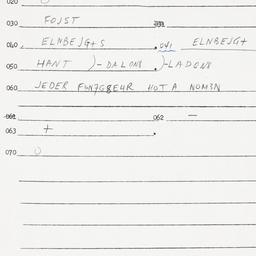 020
030 FOJST 031
040 ELNBEJG+S 041 ELNBEJG+
050 HANT )-DALON8 )-LADON8
060 JEDER HOT A NOM3N
061 062 —
063 +
070